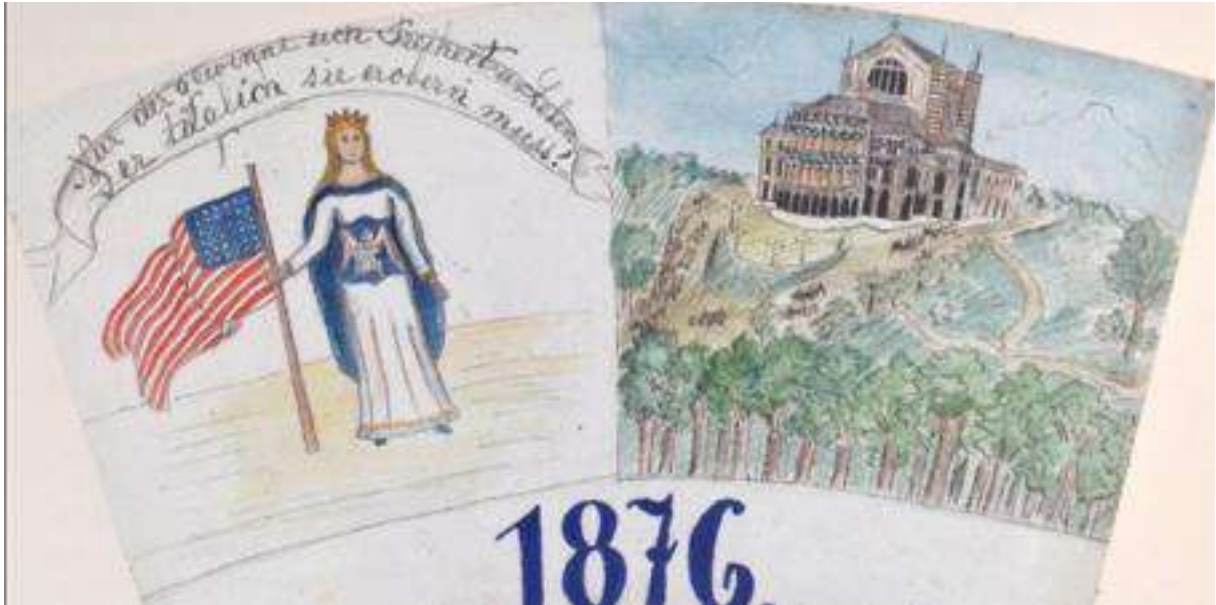 Nur der gewinnt sich Freiheit u. Leben
er sie erobern muss!
1876.